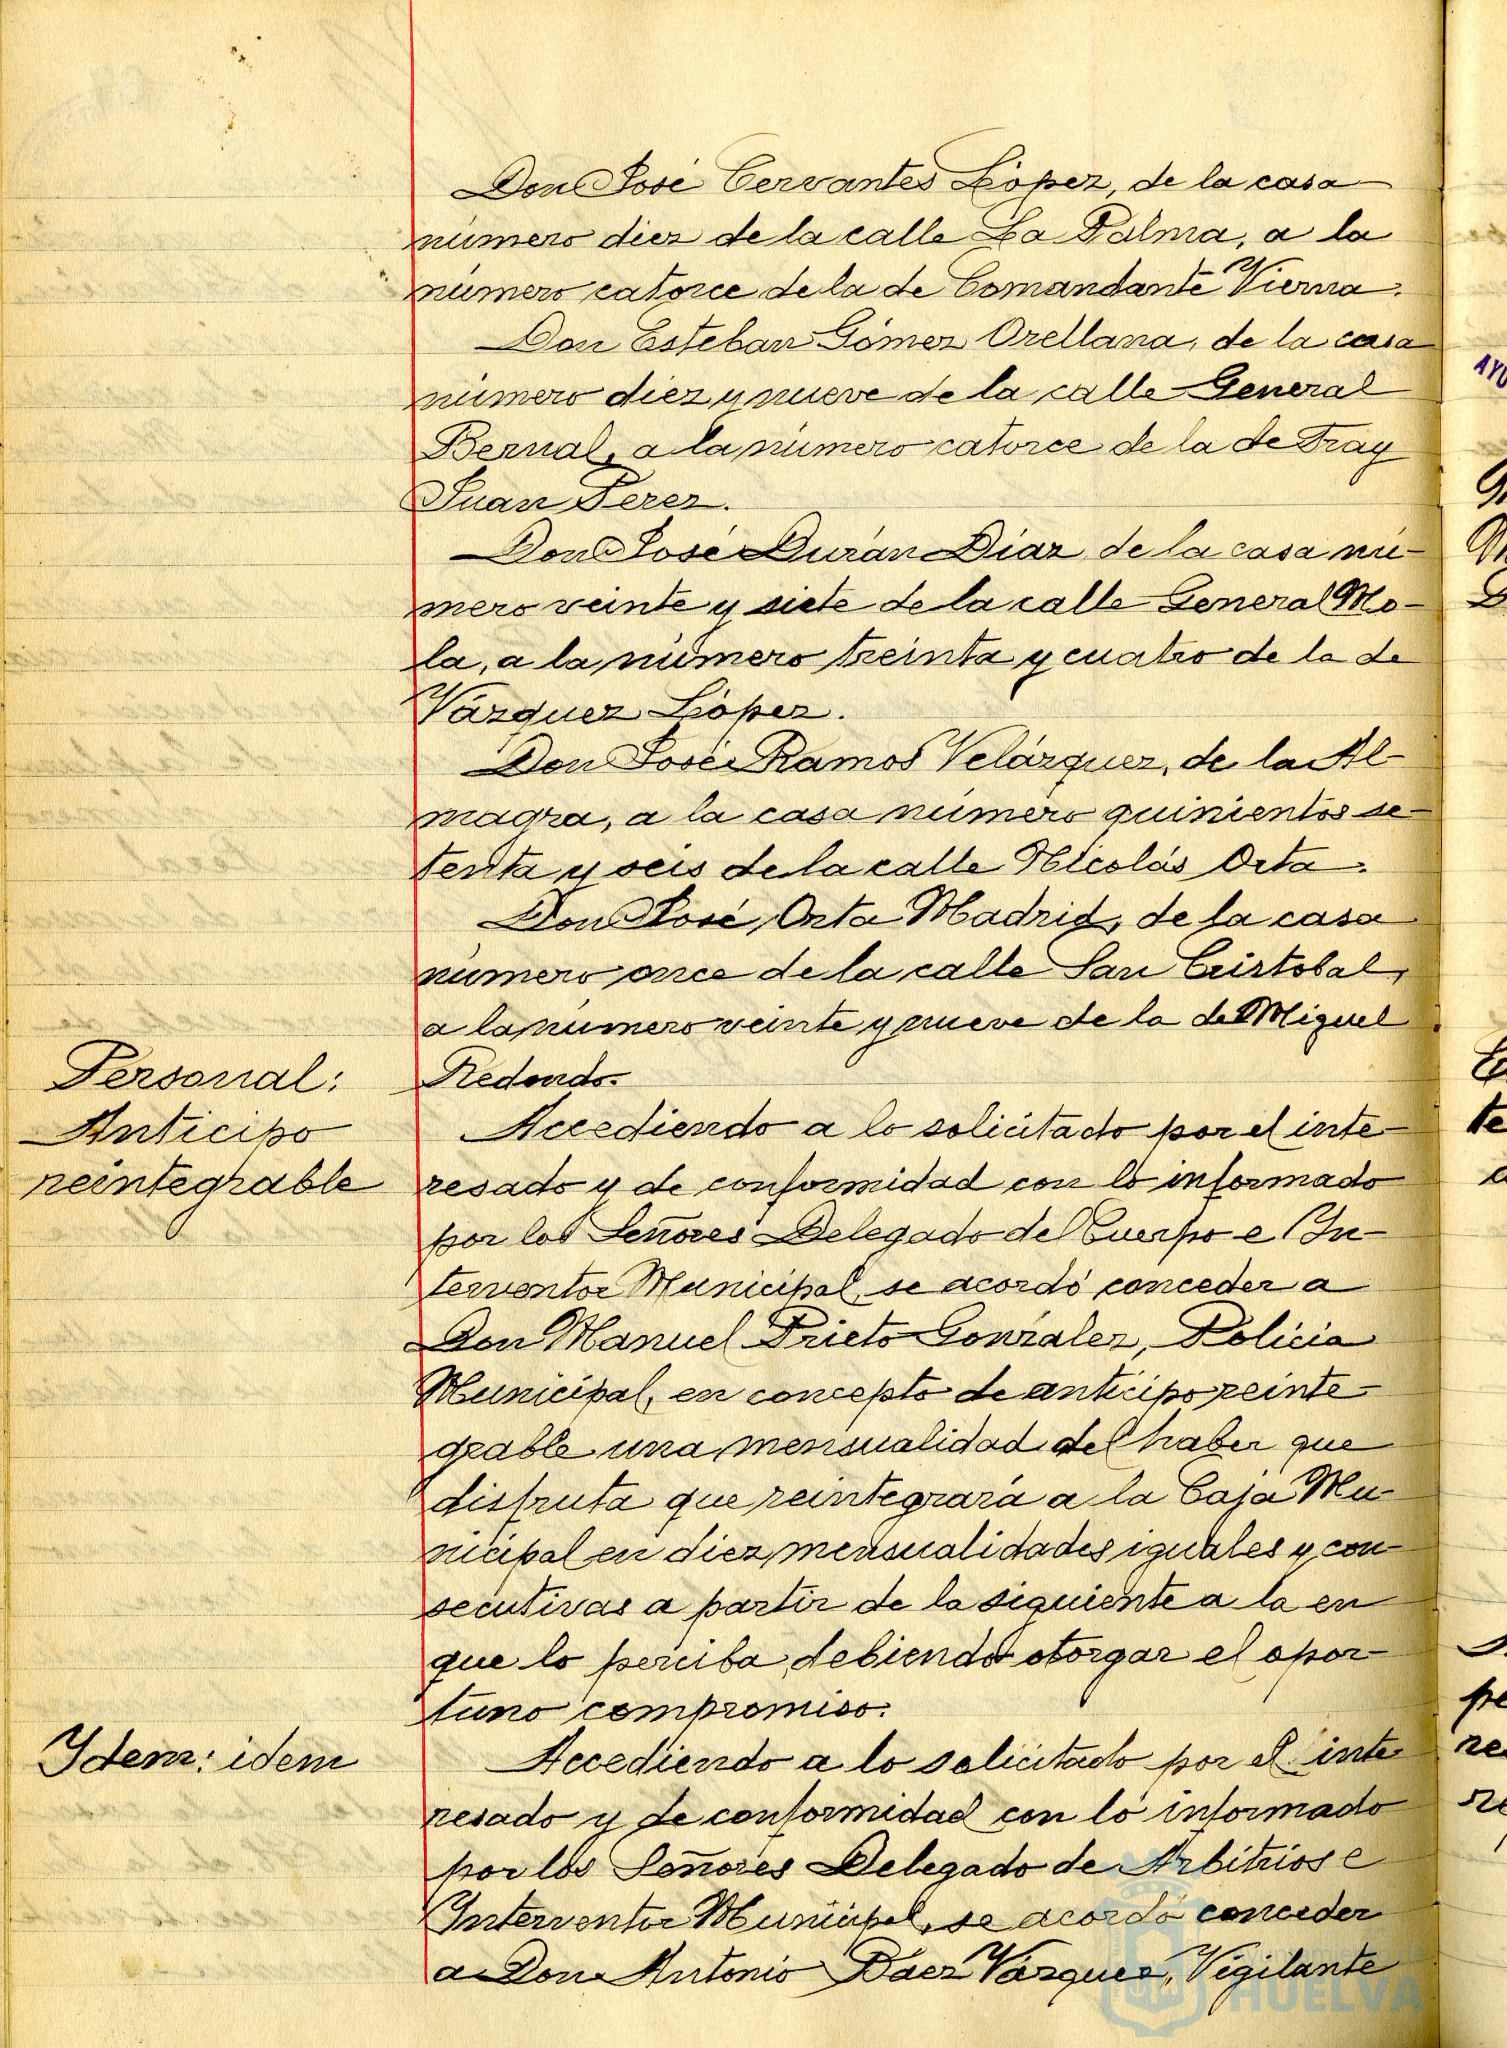 Don José Cervantes López, de la casa
número diez de la calle La Palma, a la
número catorce de la de Comandante Vierna.
Don Esteban Gómez Orellana, de la casa
número diez y nueve de la calle General
Bernal, a la número catorce de la de Fray
Juan Perez.
Don José Durán Díaz de la casa nú-
mero veinte y siete de la calle General Mo-
la, a la número treinta y cuatro de la de
Vázquez López.
Don José Ramos Velázquez, de la Al-
magra, a la casa número quinientos se-
tenta y seis de la calle Nicolás Orta.
Don José Orta Madrid, de la casa
número once de la calle San Cristobal,
a la número veinte y nueve de la de Miguel
Redondo.
Personal:
Anticipo
reintegrable
Accediendo a lo solicitado por el inte-
resado y de conformidad con lo informado
por los Señores Delegado del Cuerpo e In-
terventor Municipal, se acordó conceder a
Don Manuel Prieto González, Policia
Municipal, en concepto de anticipo reinte-
grable una mensualidad del haber que
disfruta que reintegrará a la Caja Mu-
nicipal en diez mensualidades iguales y con-
secutivas a partir de la siguiente a la en
que lo perciba, debiendo otorgar el opor-
tuno compromiso.
Idem: idem
Accediendo a lo solicitado por el inte-
resado y de conformidad con lo informado
por los Señores Delegado de Arbitrios e
Interventor Municipal, se acordó conceder
a Don Antonio Báez Vázquez, Vigilante
HUELVA